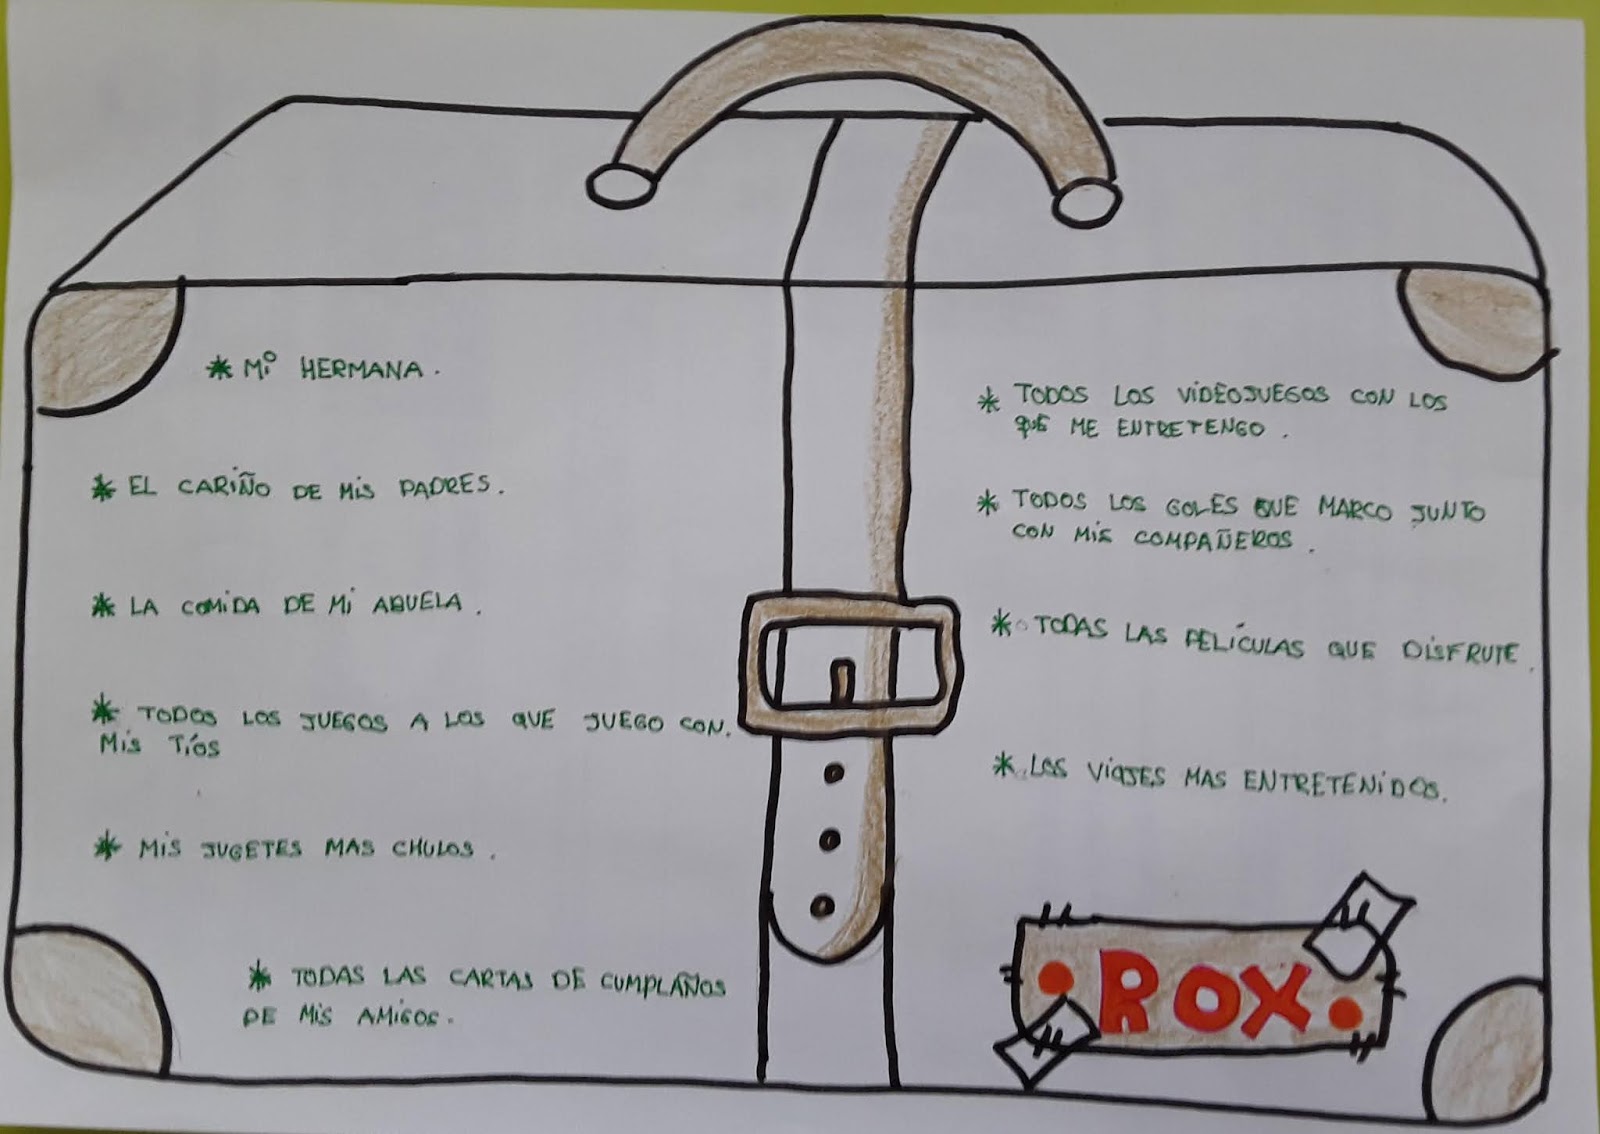 * Mi HERMANA.
* EL CARIÑO DE MIS PADRES.
* LA COMIDA DE MI ABUELA.
* TODOS LOS JUEGOS A LOS QUE JUEGO CON.
MIS TÍOS
* MIS JUGETES MAS CHULOS.
* TODAS LAS CARTAS DE CUMPLAÑOS
DE MIS AMIGOS.
* TODOS LOS VIDEOJUEGOS CON LOS
QUE ME ENTRETENGO.
* TODOS LOS GOLES QUE MARCO JUNTO
CON MIS COMPAÑEROS.
* TODAS LAS PELÍCULAS QUE DISFRUTE.
* LOS VIAJES MAS ENTRETENIDOS.
ROX